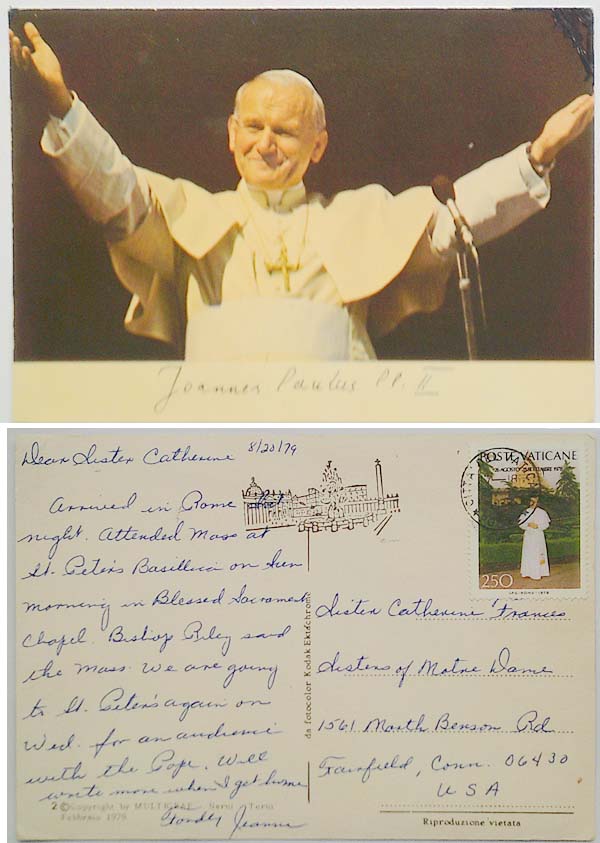 Joannes Paulus PP. II
Dear Sister Catherine
8/20/79
Arrived in Rome
night. Attended Mass at
St. Peter's Basillica on Sun
morning in Blessed Sacrament
Chapel. Bishop Riley said
the Mass. We are going
to St. Peter's again on
Wed. for an audience
with the Pope. Will
write more when I get home
Fondly Jeanne
2 © Copyright by MULTIGRAF
Terni
Febbraio 1979
da fotocolor Kodak Ektachrome
POSTE VATICANE
26 AGOSTO
SETTEMBRE 1978
CITTA
250
1978
Sister Catherine Frances
Sisters of Notre Dame
1561 North Benson Rd
Fairfield, Conn. 06430
USA
Riproduzione vietata